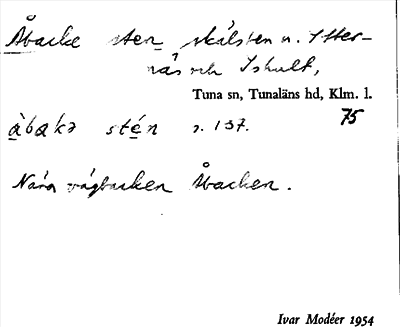 Åbacke sten skälsten n. Ytter-
näs och Ishult,
Tuna sn, Tunaläns hd, Klm. l.
àbakə stén s. 137. 75
Nära vägbacken Åbacken.
Ivar Modéer 1954